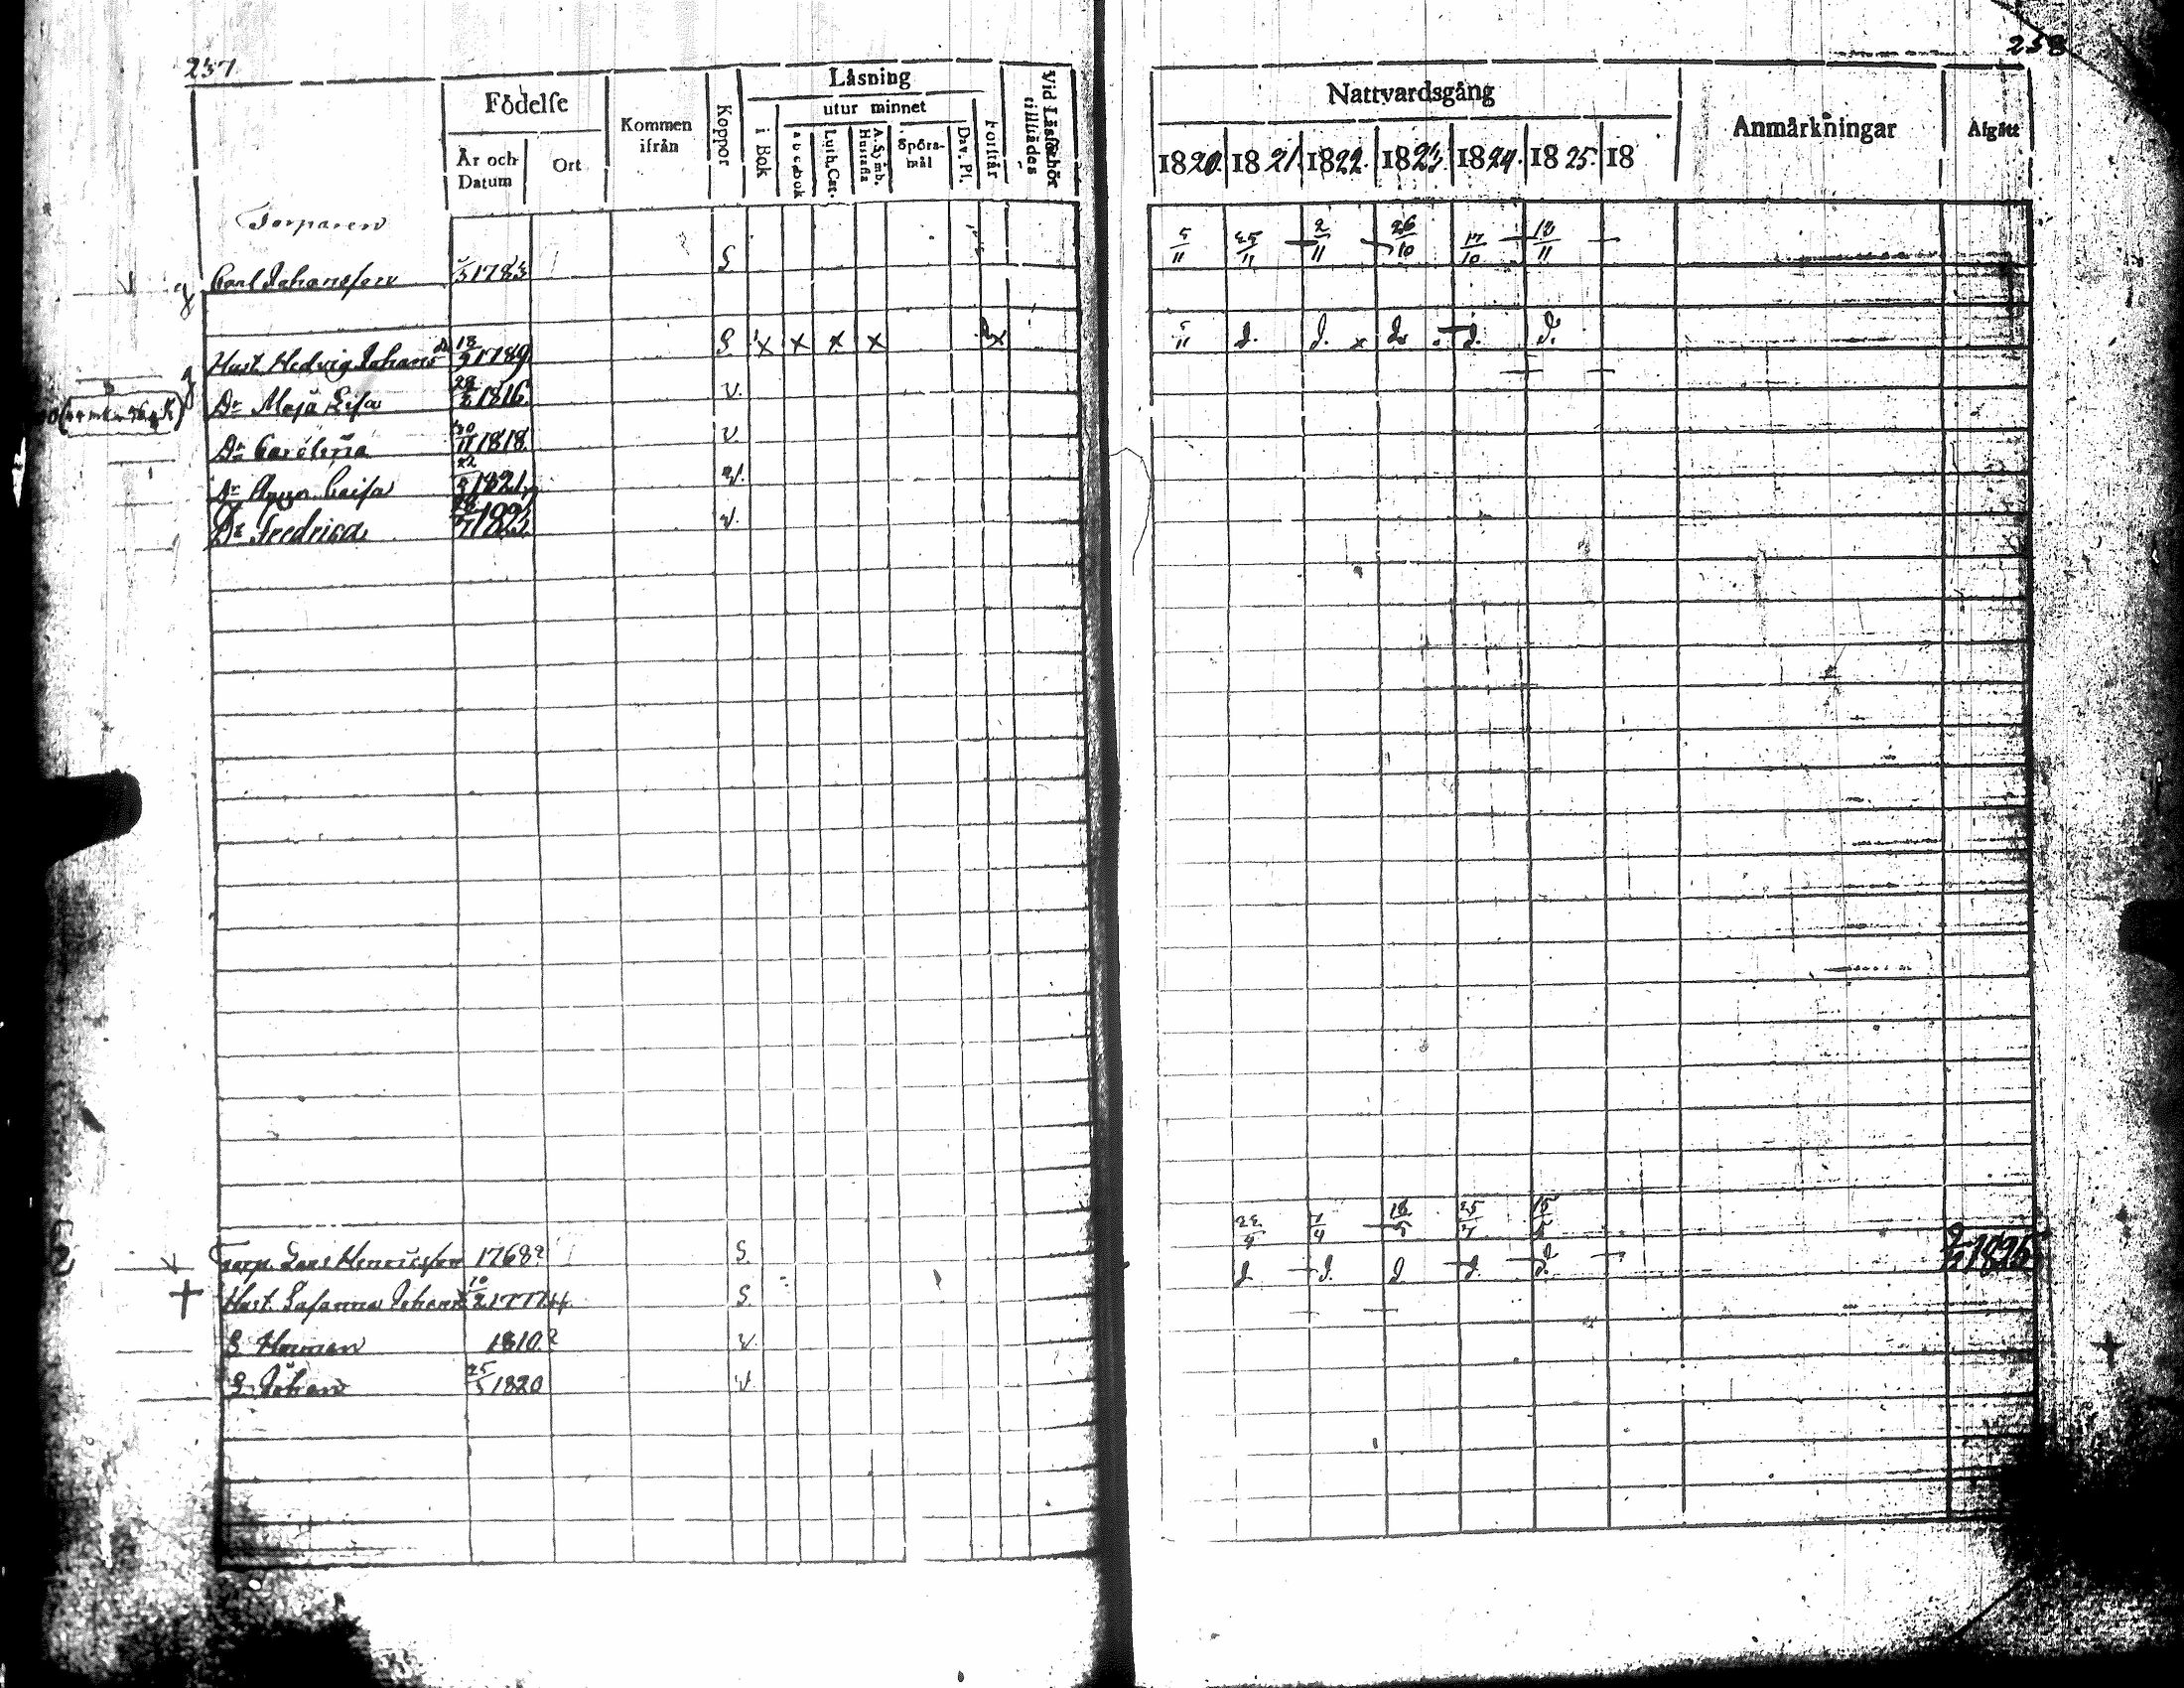 257
Födelse
År och Datum
Ort
Kommen ifrån
Koppor
Läsning
i Bok
utur minnet
a b c d bok
Luth. Cat.
A. Symb. Hustafla
Spörsmål
Dav. Ps.
Förstår
Vid Läsförhör tillstädes
Torparen
Carl Johansson 1783 S
Hust. Hedvig Johans dr 18/3 1789 S x x x x x
Dr Maja Lisa 28/3 1816 v.
Dr Carolina 30/11 1818 v
Dr Anna Caisa 22/3 1821 v.
Dr Fredrica v.
Torp. Lars Henricsson 1768? S
Hust. Susanna Johans 10/2 1774 S
S Herman 1810? v
S Johan 25/5 1820 v
258
Nattvardsgång
1820. 1821. 1822. 1823. 1824. 1825. 18
Anmärkningar
Afgått
5/11 25/11 2/11 26/10 17/10 18/11
5/11 d. d. d. d. d.
22/4 7/4 18/5 25/7 15/5
d d. d d. d.
1825